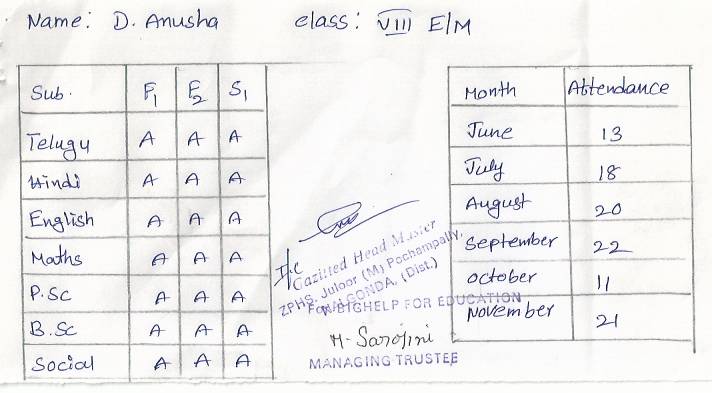 Name: D. Anusha class: VIII E/M
Sub. F1 F2 S1
Telugu A A A
Hindi A A A
English A A A
Maths A A A
P.Sc A A A
B.Sc A A A
Social A A A
I/c
Gazitted Head Master
ZPHS, Juloor (M) Pochampally,
NALGONDA, (Dist.)
For BIGHELP FOR EDUCATION
M. Sarojini
MANAGING TRUSTEE
Month Attendance
June 13
July 18
August 20
September 22
october 11
November 21